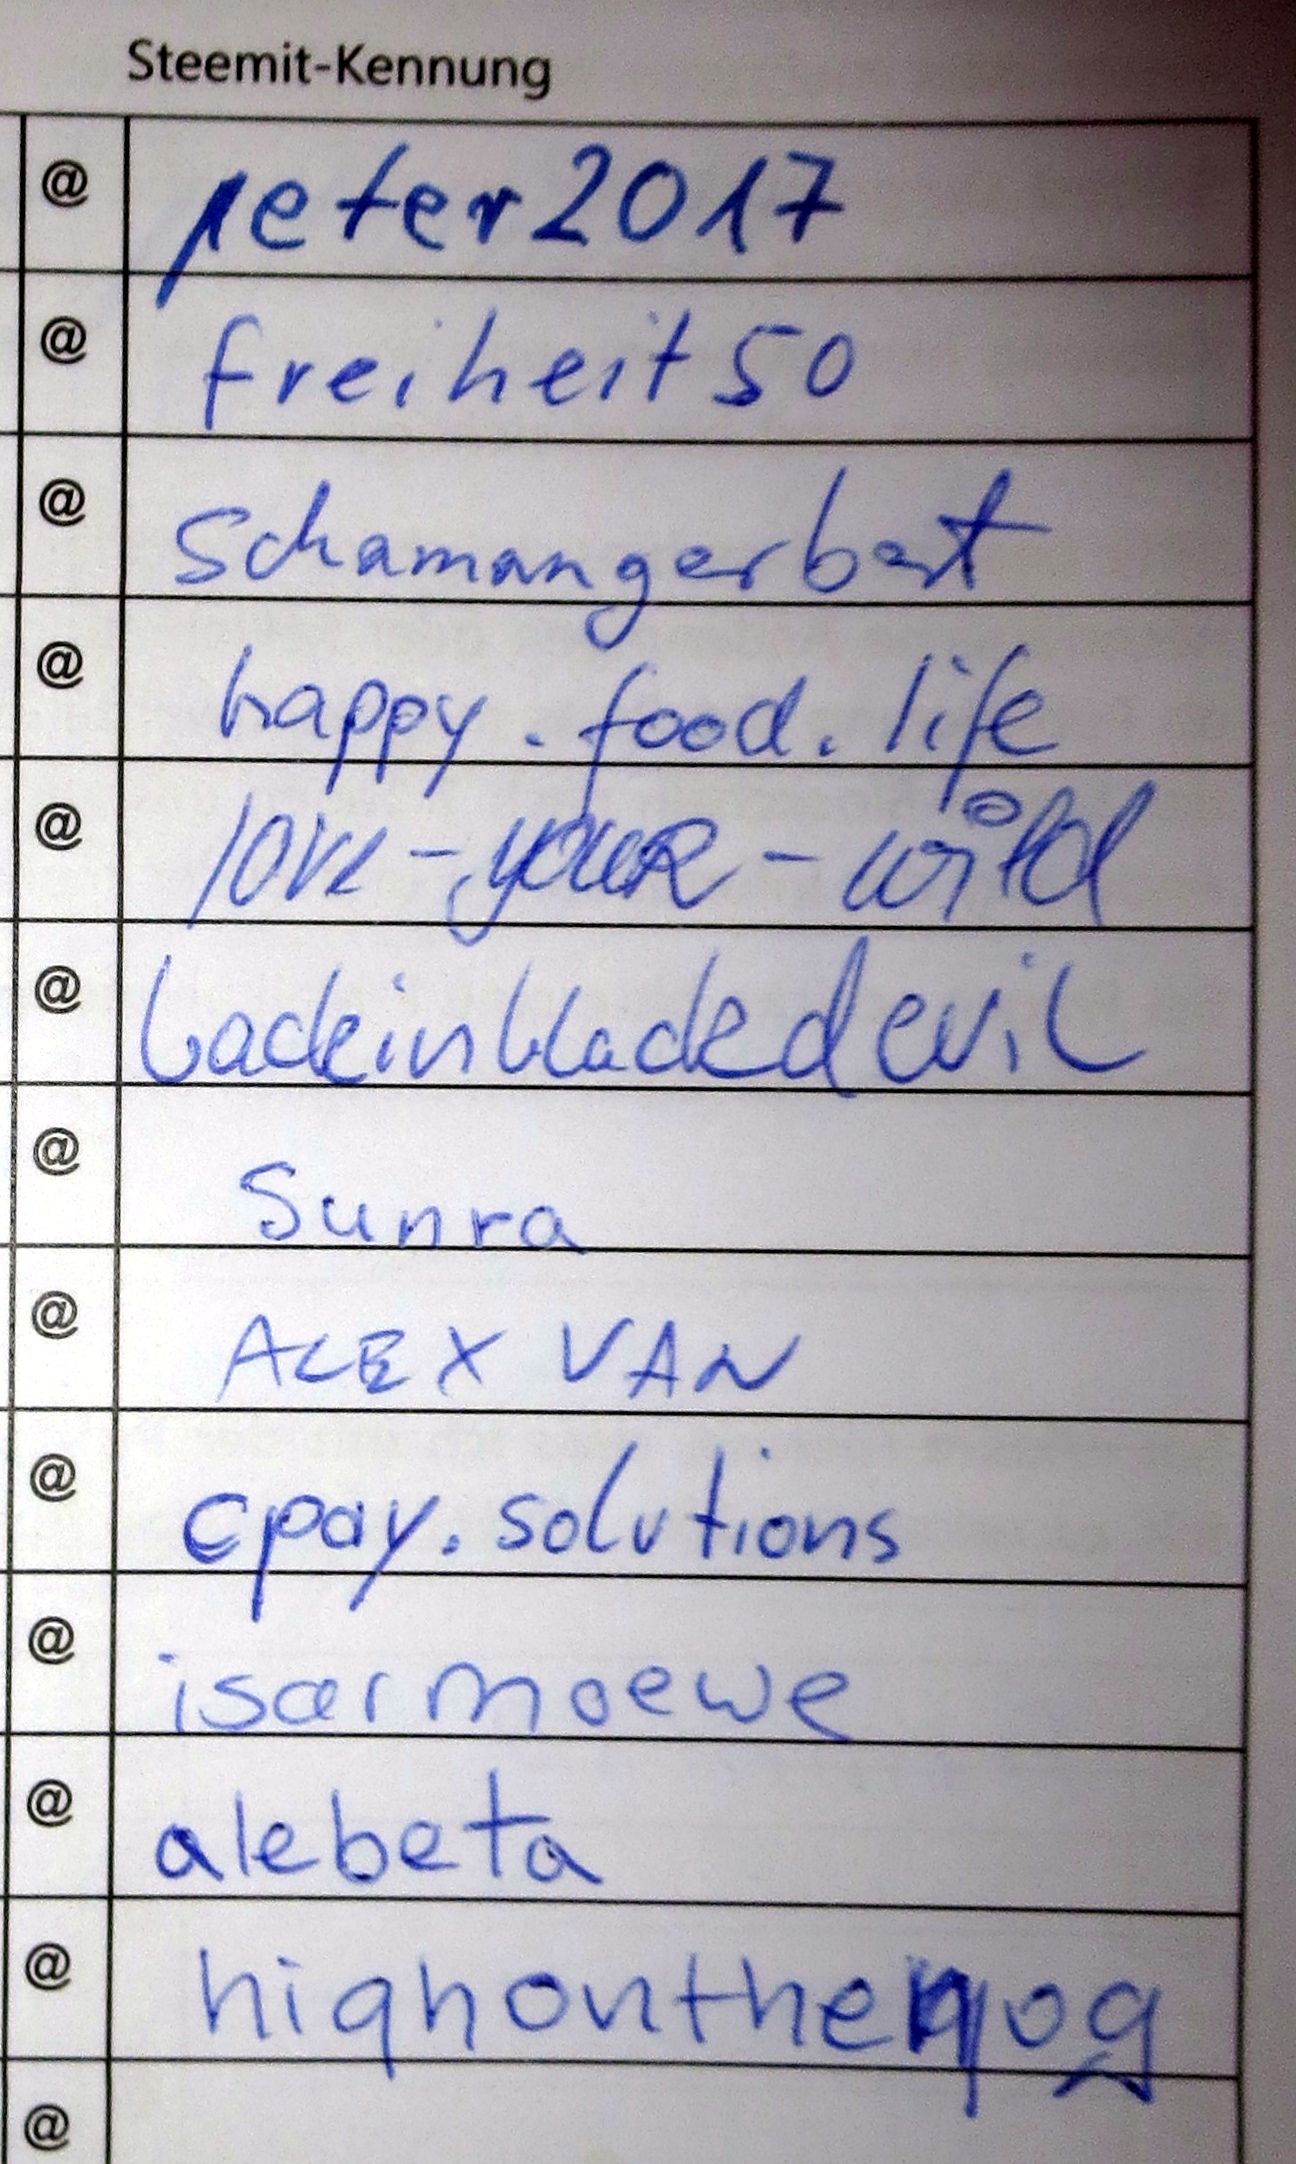 Steemit-Kennung
@ peter2017
@ freiheit50
@ schamangerbert
@ happy.food.life
@ love-your-wild
@ backinblackdevil
@ Sunra
@ ALEX VAN
@ cpay.solutions
@ isarmoewe
@ alebeta
@ highonthehog
@